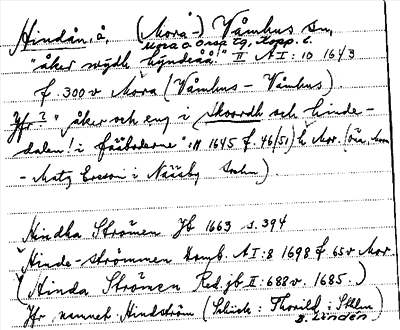 Hindån, å, (Mora) Våmhus sn,
Mora o Orsa tg, Kopp. l.
"åker widh hyndeåå" II AI: 10 1643
f. 300 v Mora (Våmhus - Våmhus).
Jfr? "åker och eng i Skoordh och hinde-
dalen! i fäboderne": II 1645 f. 46/51) h Mor.
- Matz Ersson i Näsby Sochn)
Hindha Strömen Jb 1663 s. 394
Hinde-strömmen Komb. AI: 8 1698 f 65 v Mor.
(Hinda Strömen Red. jb II: 688 v. 1685.)
Jfr namnet Hindström (Schück: Thorild: Sthlm
B. Lindén.